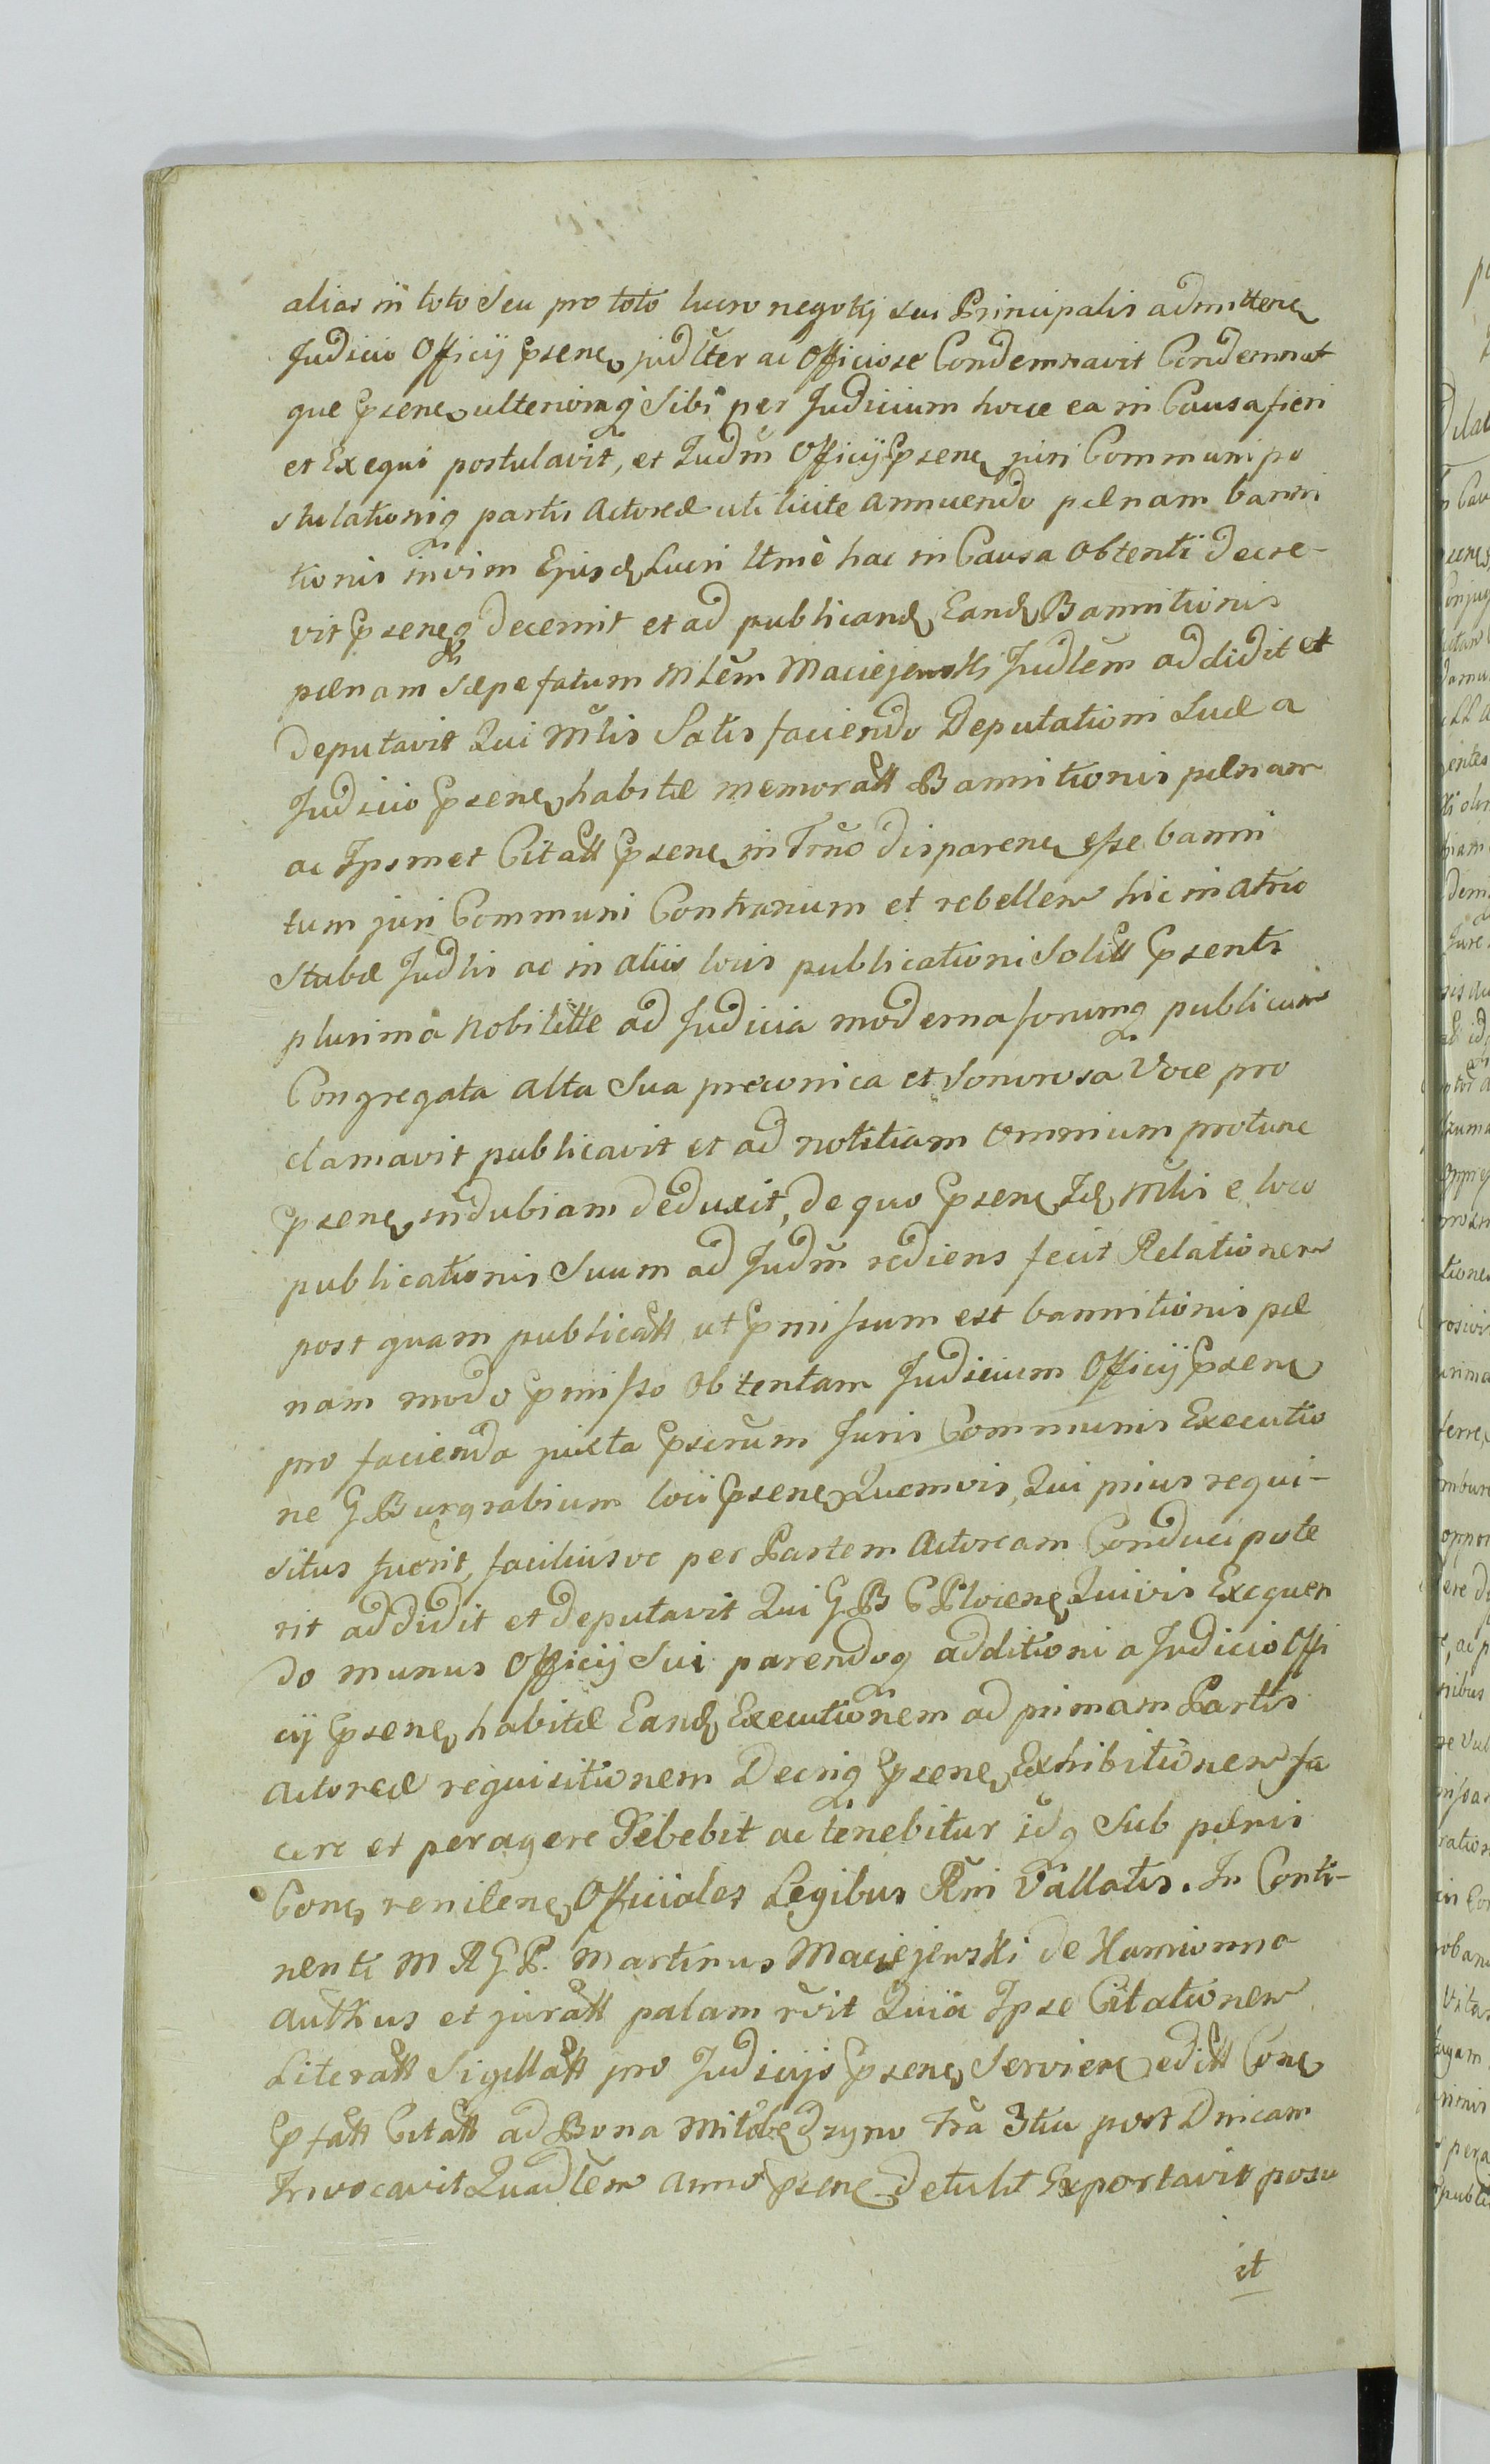 alias in toto seu pro toto lucro negotij sui Principalis admitten
Judicio Officij Psene judlter ac Officiose Condemnavit Condemnat
que Psene ulterioraq sibi per Judicium hocce ea in Causa fieri
et Exequi postulavit, et Judm Officij Psene juri Communi po
stulationiq partis Actoreæ uti licite annuendo pænam banni
tionis in vim Ejusd Lucri ltmè hac in Causa Obtenti decre-
vit Pseneq decernit et ad publicand Eand Bannitionis
pænam Sæpefatum Mlem Maciejewski Judlem addidit et
deputavit Qui Mlis Satisfaciendo Deputationi Suæ a
Judicio Psene habitæ memoratt Bannitionis pænam
ac Ipsmet Citatt Psene in Trno disparene esse banni
tum juri Communi Contrarium et rebellem hic in atrio
Stubæ Judlis ac in aliis locis publicationi Solitt Psents
plurimâ Nobilitte ad Judicia moderna forumq publicum
Congregata alta Sua preconica et Sonorosa Voce pro
clamavit publicavit et ad notitiam omnium protunc
Psene indubiam deduxit, de quo Psene Id Mlis e loco
publicationis Suum ad Judm rediens fecit Relationem
post quam publicatt ut Pmissum est bannitionis pæ
nam modo Pmisso Obtentam Judicium Officij Psene
pro facienda juxta Pscrum Juris Communis Executio
ne G Burgrabium loci Psene Quemvis, Qui prius requi-
situs fuerit, faciliusve per Partem Actoream Conduci pote
rit addidit et deputavit Qui G B C Plociene Quivis Exequen
do munus Officij Sui parendoq additioni a Judicio Offi
cij Psene habitæ Eand Executionem ad primam Partis
Actoreæ requisitionem Decriq Psene Exhibitionem fa
cere et peragere debebit ac tenebitur idq Sub pænis
Conc renitene Officiales Legibus Rni Vallatis. In Conti-
nenti M R G P. Martinus Maciejewski de Hamionna
Authus et juratt palam rvit Quia Ipse Citationem
Literatt Sigillatt pro Judicijs Psene Servien editt Conc
Pfatt Citatt ad Bona Milobędzyno fra 3tia post Dnicam
Invocavit Quadlem anno Psene detulit Exportavit posu
it